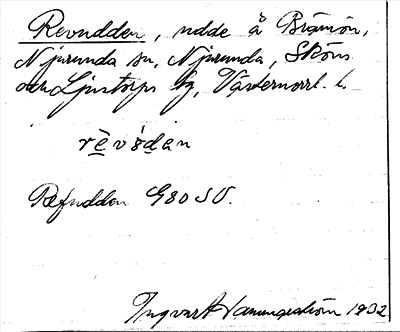 Revudden, udde å Brämön,
Njurunda sn, Njurunda, Sköns
och Ljustorps tg, Västernorrl. l.
Refudden G80 SV.
Ingvar 1932